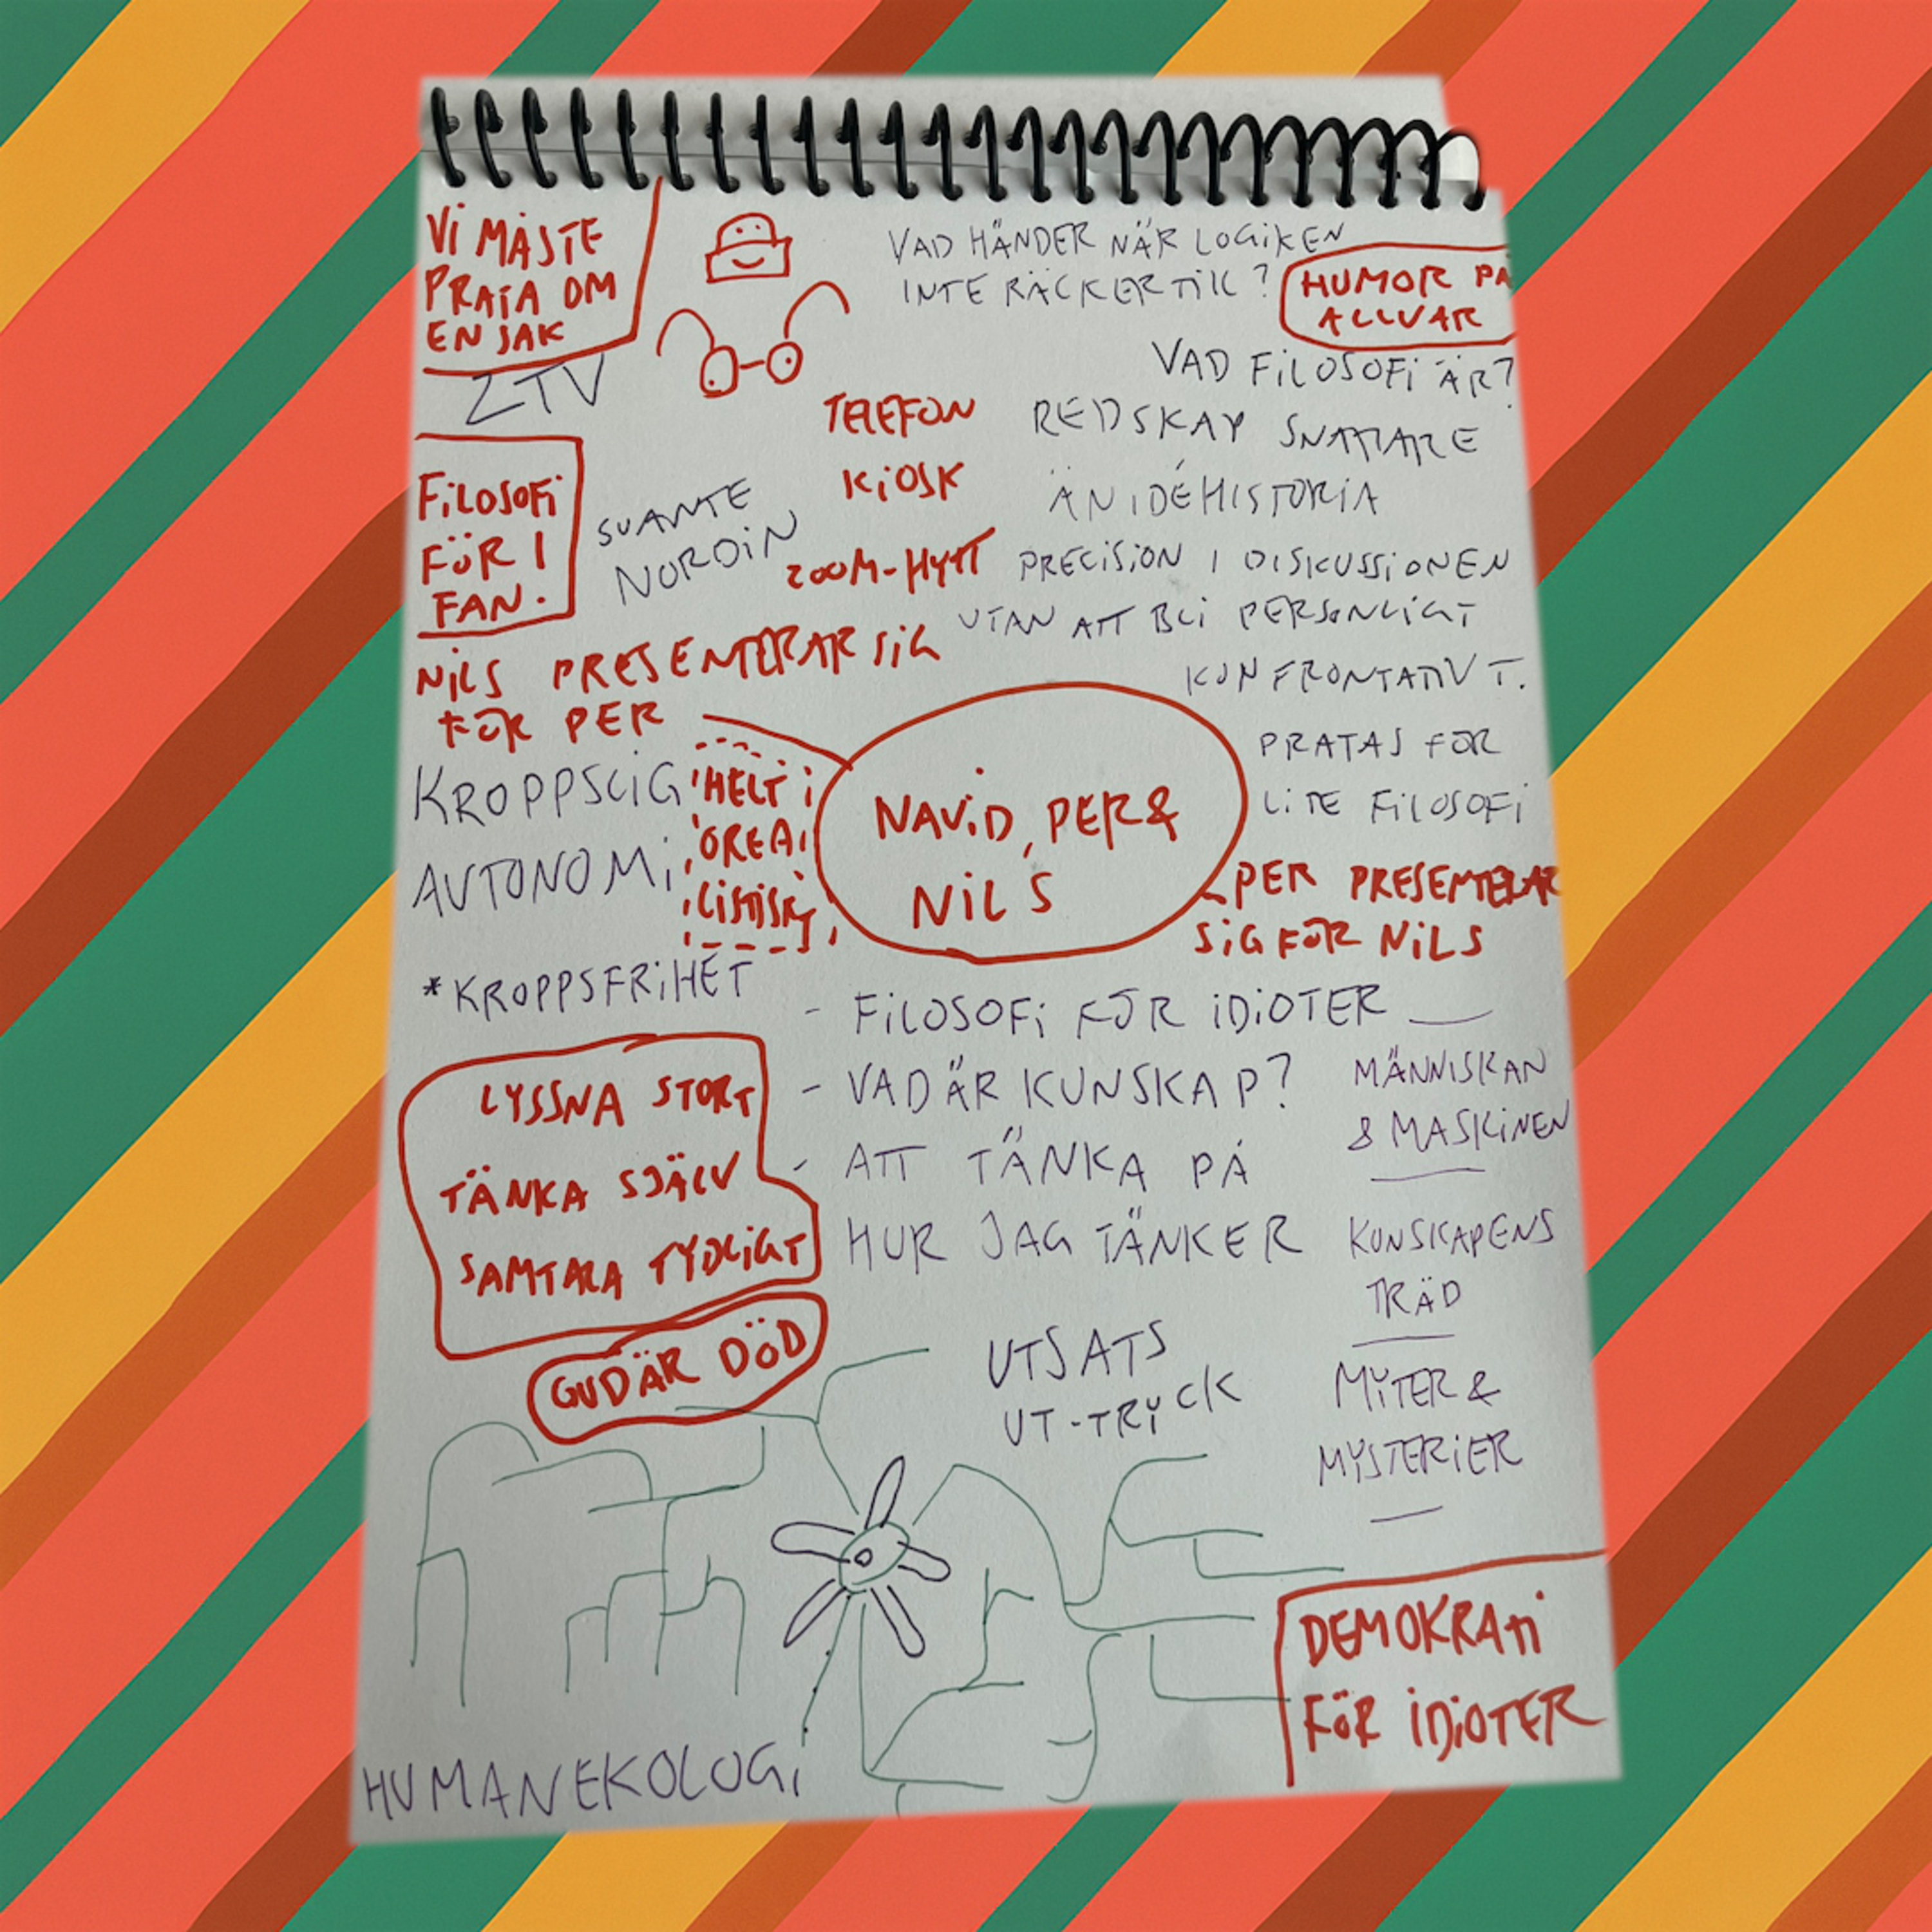 VI MÅSTE
PRATA OM
EN SAK
ZTV
VAD HÄNDER NÄR LOGIKEN
INTE RÄCKER TILL?
HUMOR PÅ
ALLVAR
VAD FILOSOFI ÄR?
REDSKAP SNARARE
ÄN IDÉHISTORIA
TELEFON
KIOSK
ZOOM-HYTT
FILOSOFI
FÖR I
FAN.
SVANTE
NORDIN
PRECISION I DISKUSSIONEN
UTAN ATT BLI PERSONLIGT
KONFRONTATIVT.
NILS PRESENTERAR SIG
FÖR PER
PRATAS FÖR
LITE FILOSOFI
KROPPSLIG
AUTONOMI
HELT
OREA
LISTISKT
NAVID, PER &
NILS
PER PRESENTERAR
SIG FÖR NILS
*KROPPSFRIHET
- FILOSOFI FÖR IDIOTER
- VAD ÄR KUNSKAP?
- ATT TÄNKA PÅ
HUR JAG TÄNKER
MÄNNISKAN
& MASKINEN
KUNSKAPENS
TRÄD
MYTER &
MYSTERIER
LYSSNA STORT
TÄNKA SJÄLV
SAMTALA TYDLIGT
GUD ÄR DÖD
UTSATS
UT-TRYCK
HUMANEKOLOGI
DEMOKRATI
FÖR IDIOTER